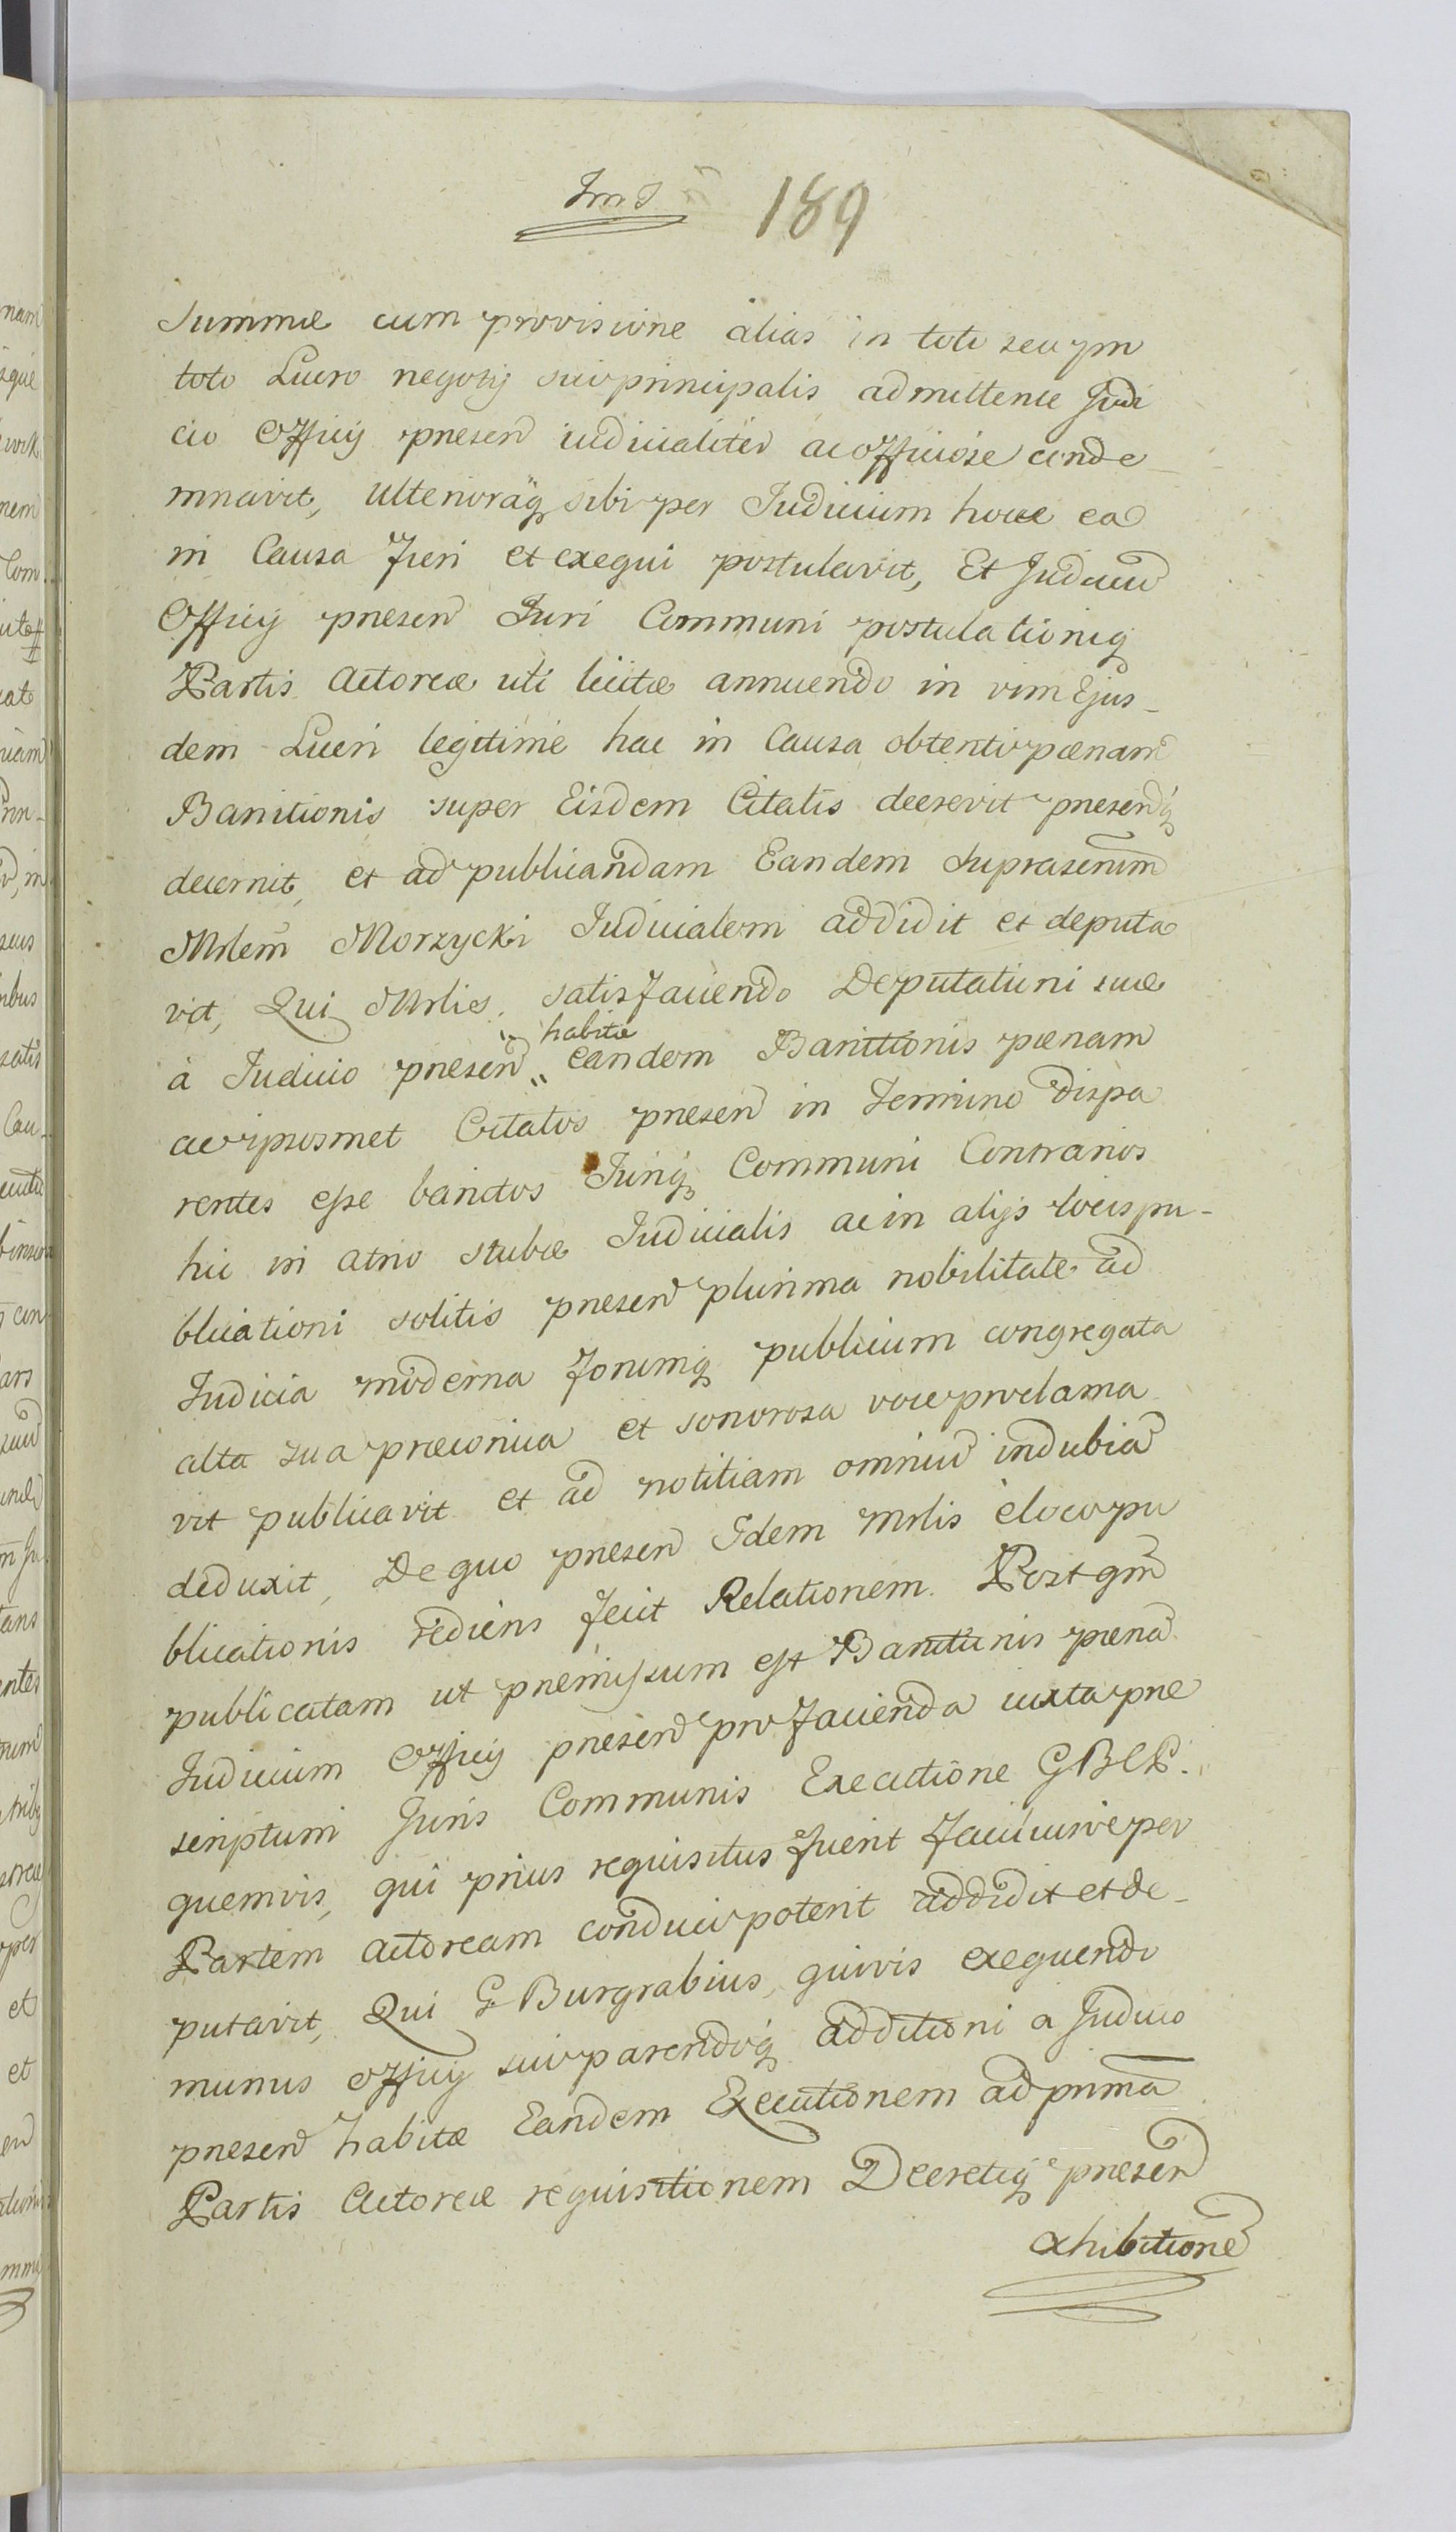 189
Summæ cum provisione alias in toto seu pm
toto Lucro negotij sui principalis admittente Judi
cio Officij præsen judicialiter ac officiose conde
mnavit, Ulterioráq sibi per Judicium hocce ea
in Causa fieri et exequi postulavit, Et Judiciu
Officij præsen Juri Communi postulationiq
Partis Actoreæ uti licitæ annuendo in vim Ejus-
dem Lucri legitimè hac in Causa obtenti pœnam
Banitionis super Eisdem Citatis decrevit præsenq
decernit, et ad publicandam Eandem suprascriptm
Mrlem Morzycki Judicialem addidit et deputa
vit, Qui Mrlis satisfaciendo Deputationi suæ
habitæ
à Judicio præsen Eandem Banitionis pœnam
ac ipsosmet Citatos præsen in Termino dispa
rentes esse banitos Juriq Communi Contrarios
hic in atrio stubæ Judicialis ac in alijs locis pu-
blicationi solitis præsen plurima nobilitate ad
Judicia moderna forumq publicum congregata
alta sua præconica et sonorosa voce proclama
vit publicavit et ad notitiam omniu indubia
deduxit, De quo præsen Idem Mrlis è loco pu
blicationis rediens fecit Relationem. Post qm
publicatam ut præmissum est Banitionis pœna
Judicium Officij præsen pro facienda iuxta præ
scriptum Juris Communis Executione GBCP.
quemvis, qui prius requisitus fuerit faciliusve per
Partem Actoream conduci poterit addidit et de-
putavit, Qui G Burgrabius, quivis exequendo
munus officij sui parendoq additioni a Judicio
præsen habitæ Eandem Executionem ad prima
Partis Actoreæ requisitionem Decretiq præsen
exhibitione